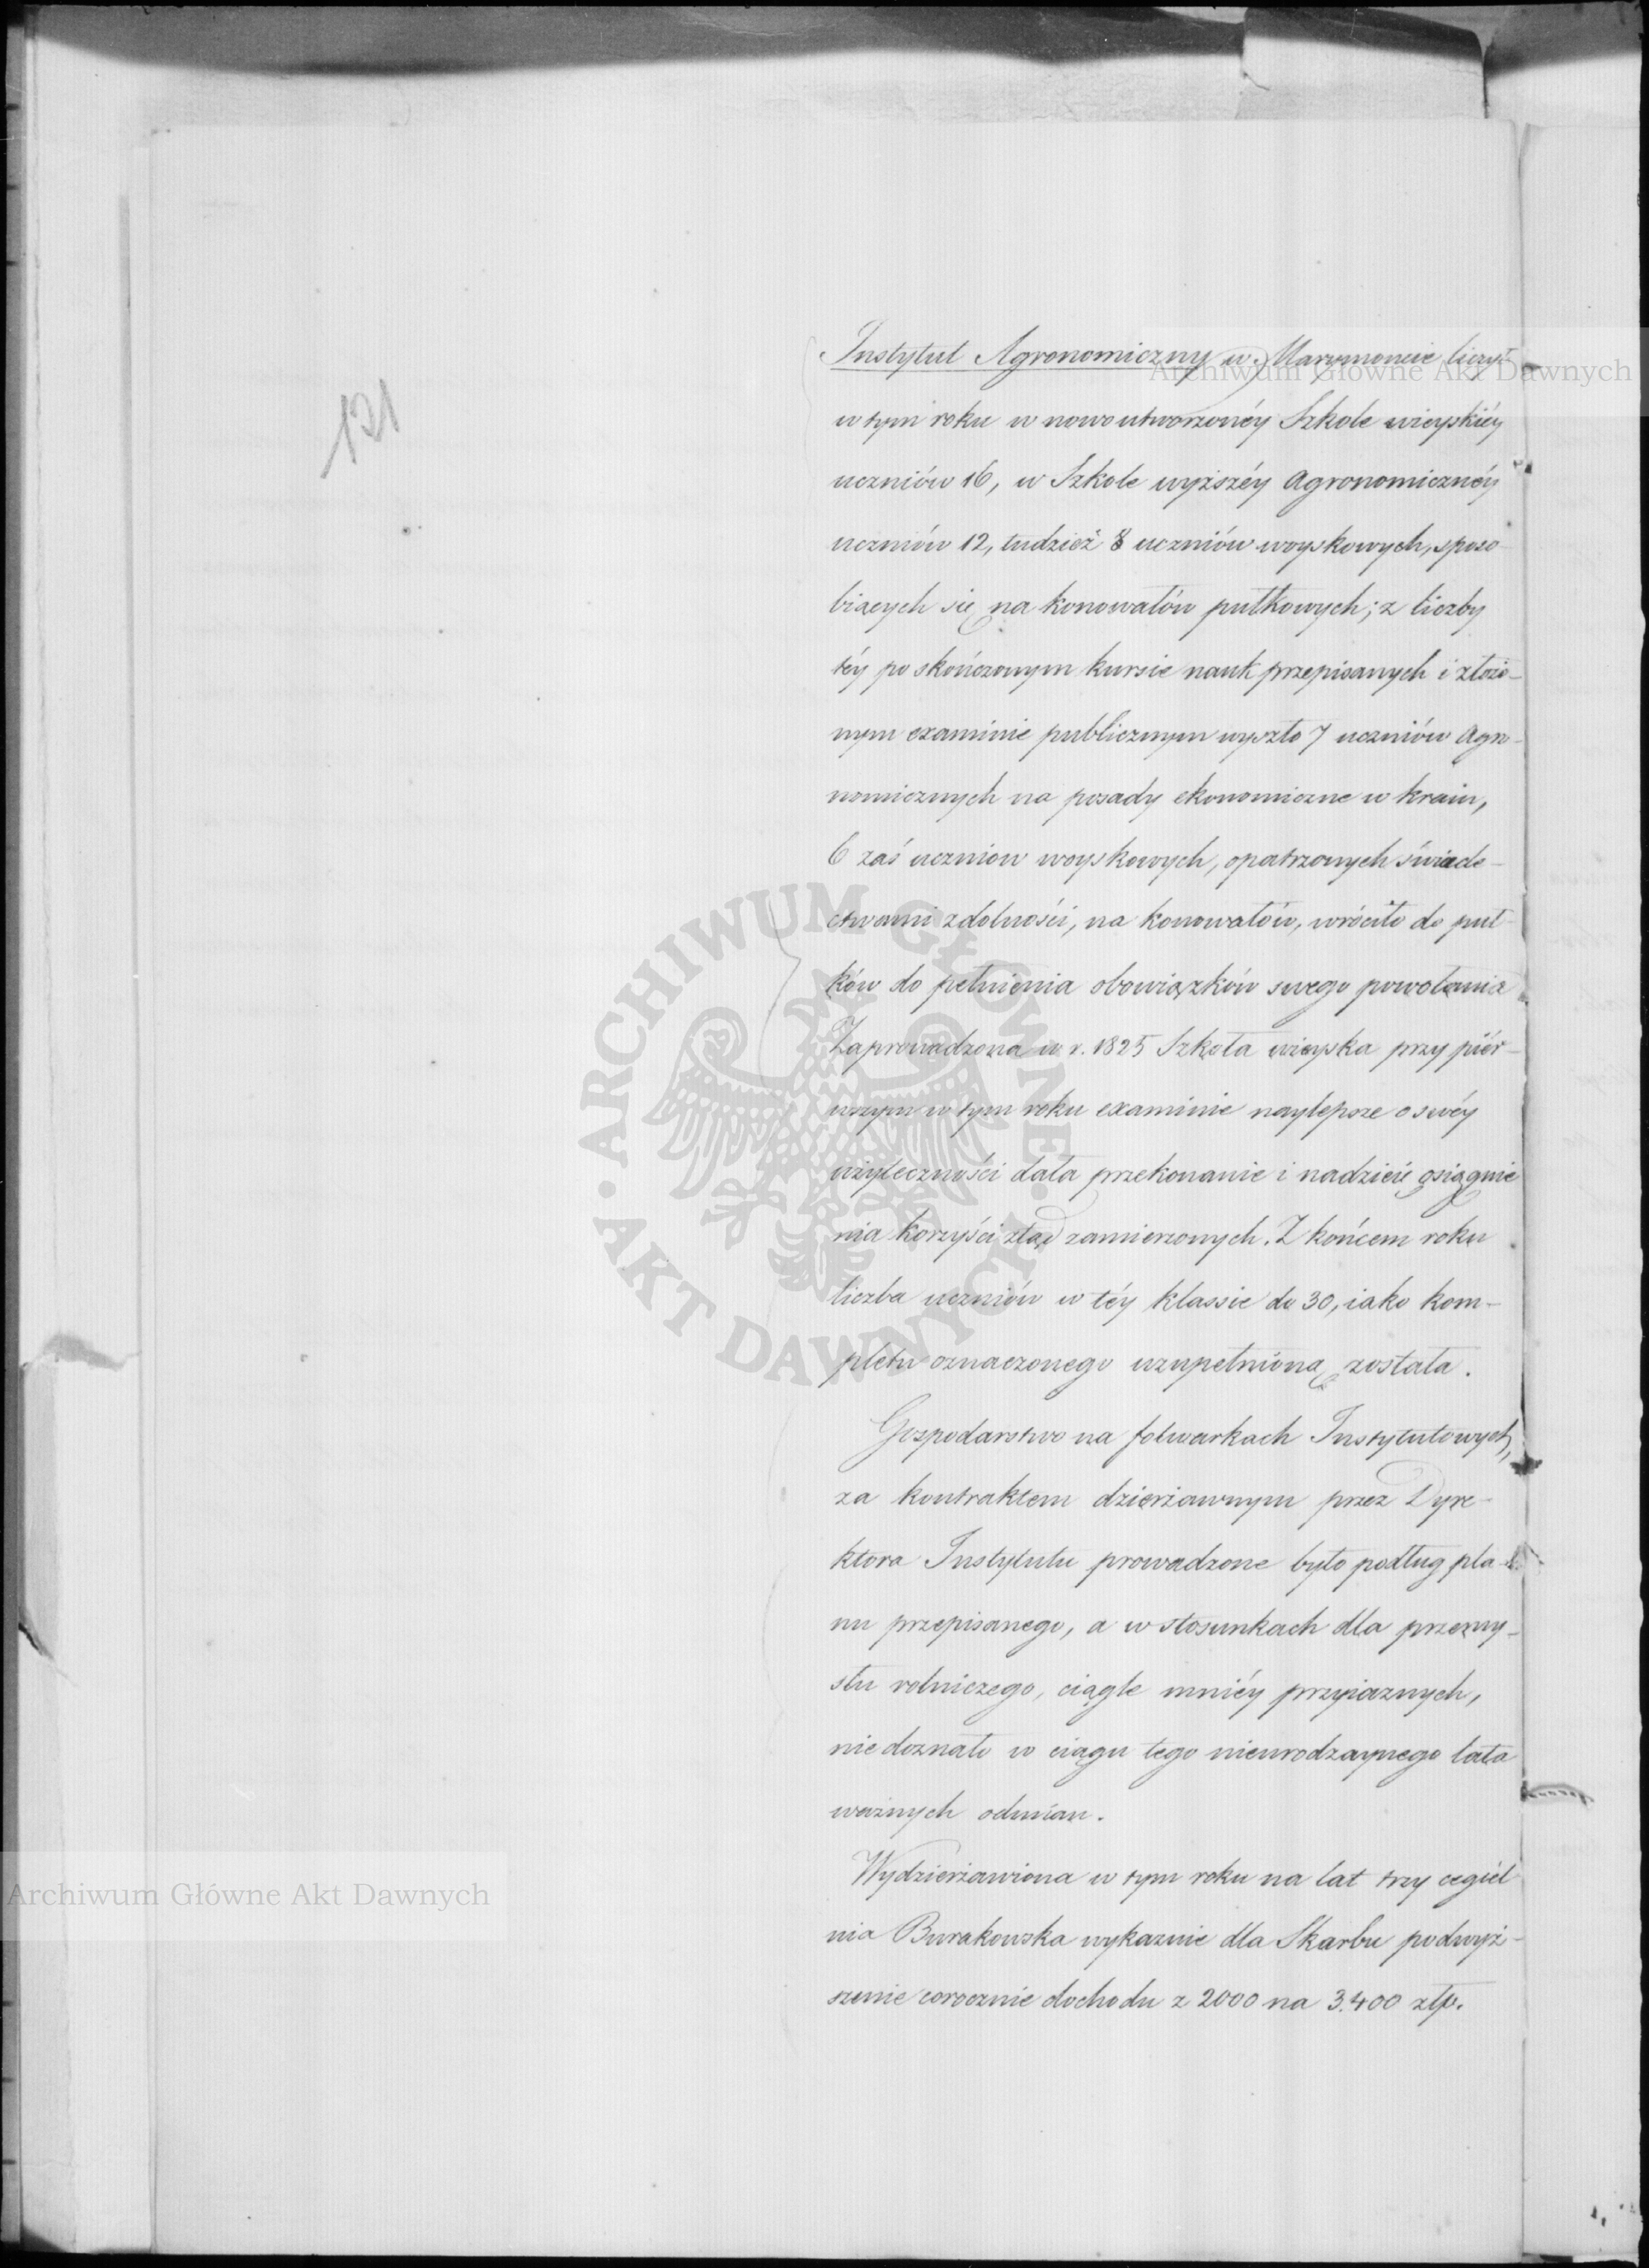 131
Instytut Agronomiczny w Marymoncie liczył
w tym roku w nowo utworzonéy Szkole wieyskiéy
uczniów 16, w Szkole wyższéy Agronomicznéy
uczniów 12, tudzież 8 uczniów woyskowych, sposo-
biących się na konowałów pułkowych; z liczby
téy po skończonym kursie nauk przepisanych i złożo-
nym examinie publicznym wyszło 7 uczniów Agro-
nomicznych na posady ekonomiczne w kraiu,
6 zaś uczniow woyskowych, opatrzonych świade-
ctwami zdolności, na konowałów, wróciło do puł-
ków do pełnienia obowiązków swego powołania
Zaprowadzona w r. 1825 Szkoła wieyska przy piér-
wszym w tym roku examinie naylepsze o swéy
użyteczności dała przekonanie i nadzieię osiągnie
nia korzyści ztąd zamierzonych. Z końcem roku
liczba uczniów w téy klassie do 30, iako kom-
pletu oznaczonego uzupełnioną została.
Gospodarstwo na folwarkach Instytutowych,
za kontraktem dzierżawnym przez Dyre-
ktora Instytutu prowadzone było podług pla-
nu przepisanego, a w stosunkach dla przemy-
słu rolniczego, ciągle mniéy przyiaznych,
nie doznało w ciągu tego nieurodzaynego lata
ważnych odmian.
Wydzierżawiona w tym roku na lat trzy cegiel
nia Burakowska wykazuie dla Skarbu podwyż-
szenie corocznie dochodu z 2000 na 3.400 złp.
Archiwum Główne Akt Dawnych
ARCHIWUM GŁÓWNE · AKT DAWNYCH ·
Archiwum Główne Akt Dawnych